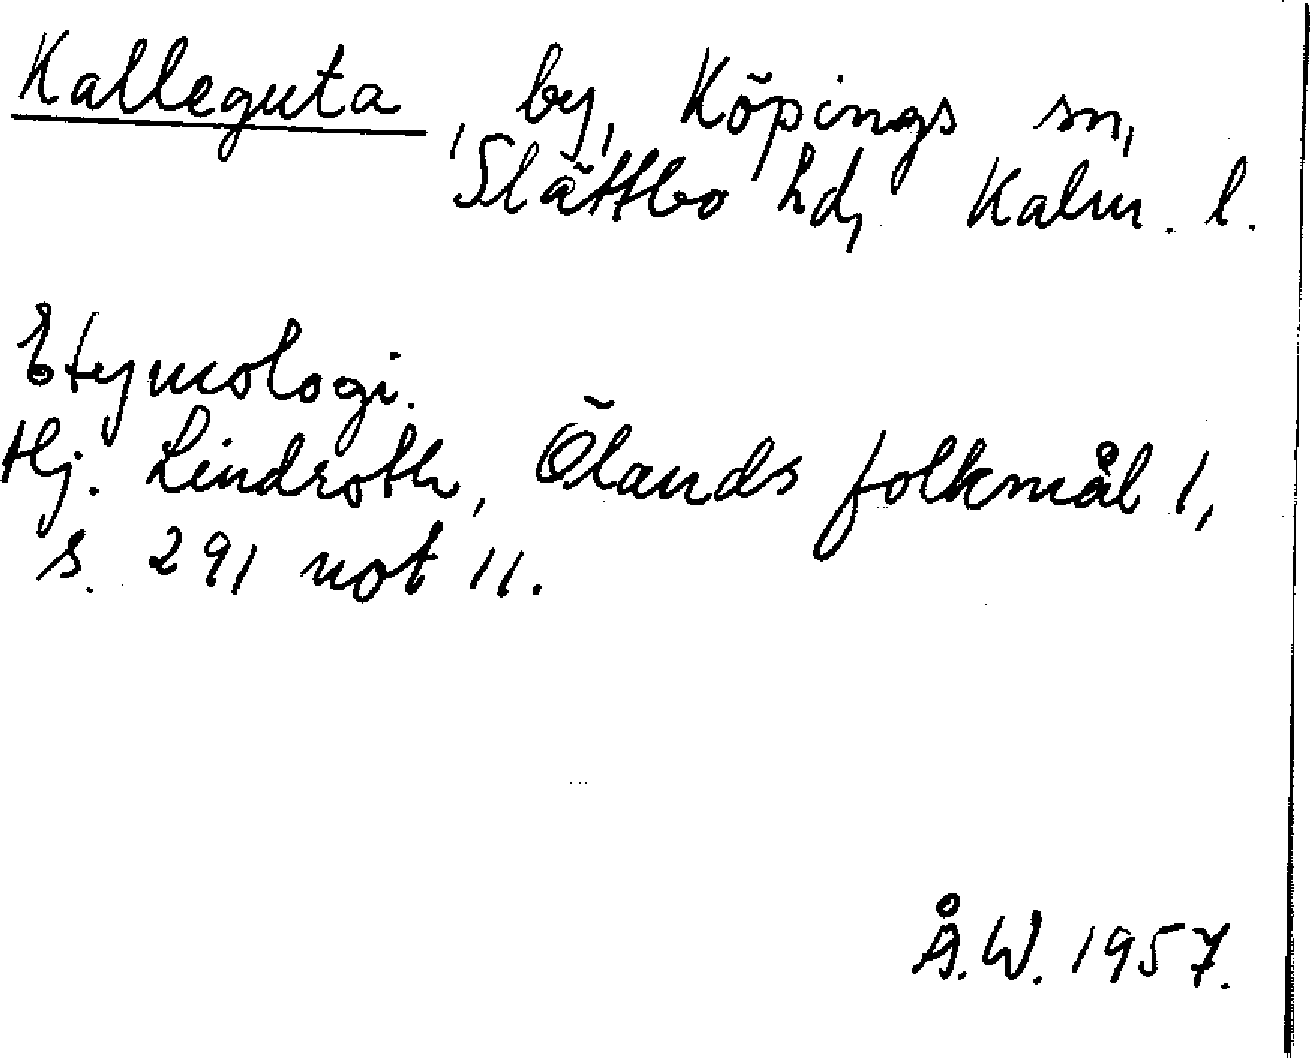 Kalleguta, by, Köpings sn,
Slättbo hd, Kalm. l.
Etymologi.
Hj. Lindroth, Ölands folkmål 1,
s. 291 not 11.
Å.W. 1957.